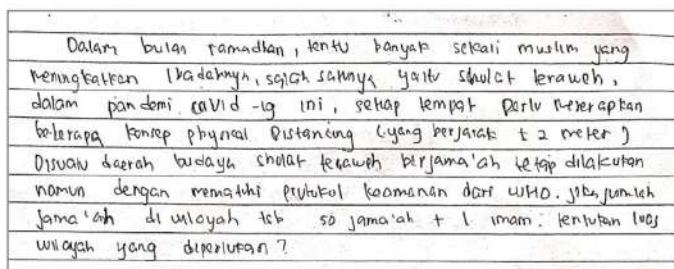 Dalam bulan ramadhan, tentu banyak sekali muslim yang
meningkatkan ibadahnya, salah satunya yaitu sholat teraweh.
dalam pandemi covid-19 ini, setiap tempat perlu menerapkan
beberapa konsep physical Distancing (yang berjarak ± 2 meter)
Disuatu daerah budaya sholat teraweh berjama'ah tetap dilakukan
namun dengan mematuhi protokol keamanan dari WHO. jika jumlah
jama'ah di wilayah tsb 50 jama'ah + 1 imam. tentukan luas
wilayah yang diperlukan?